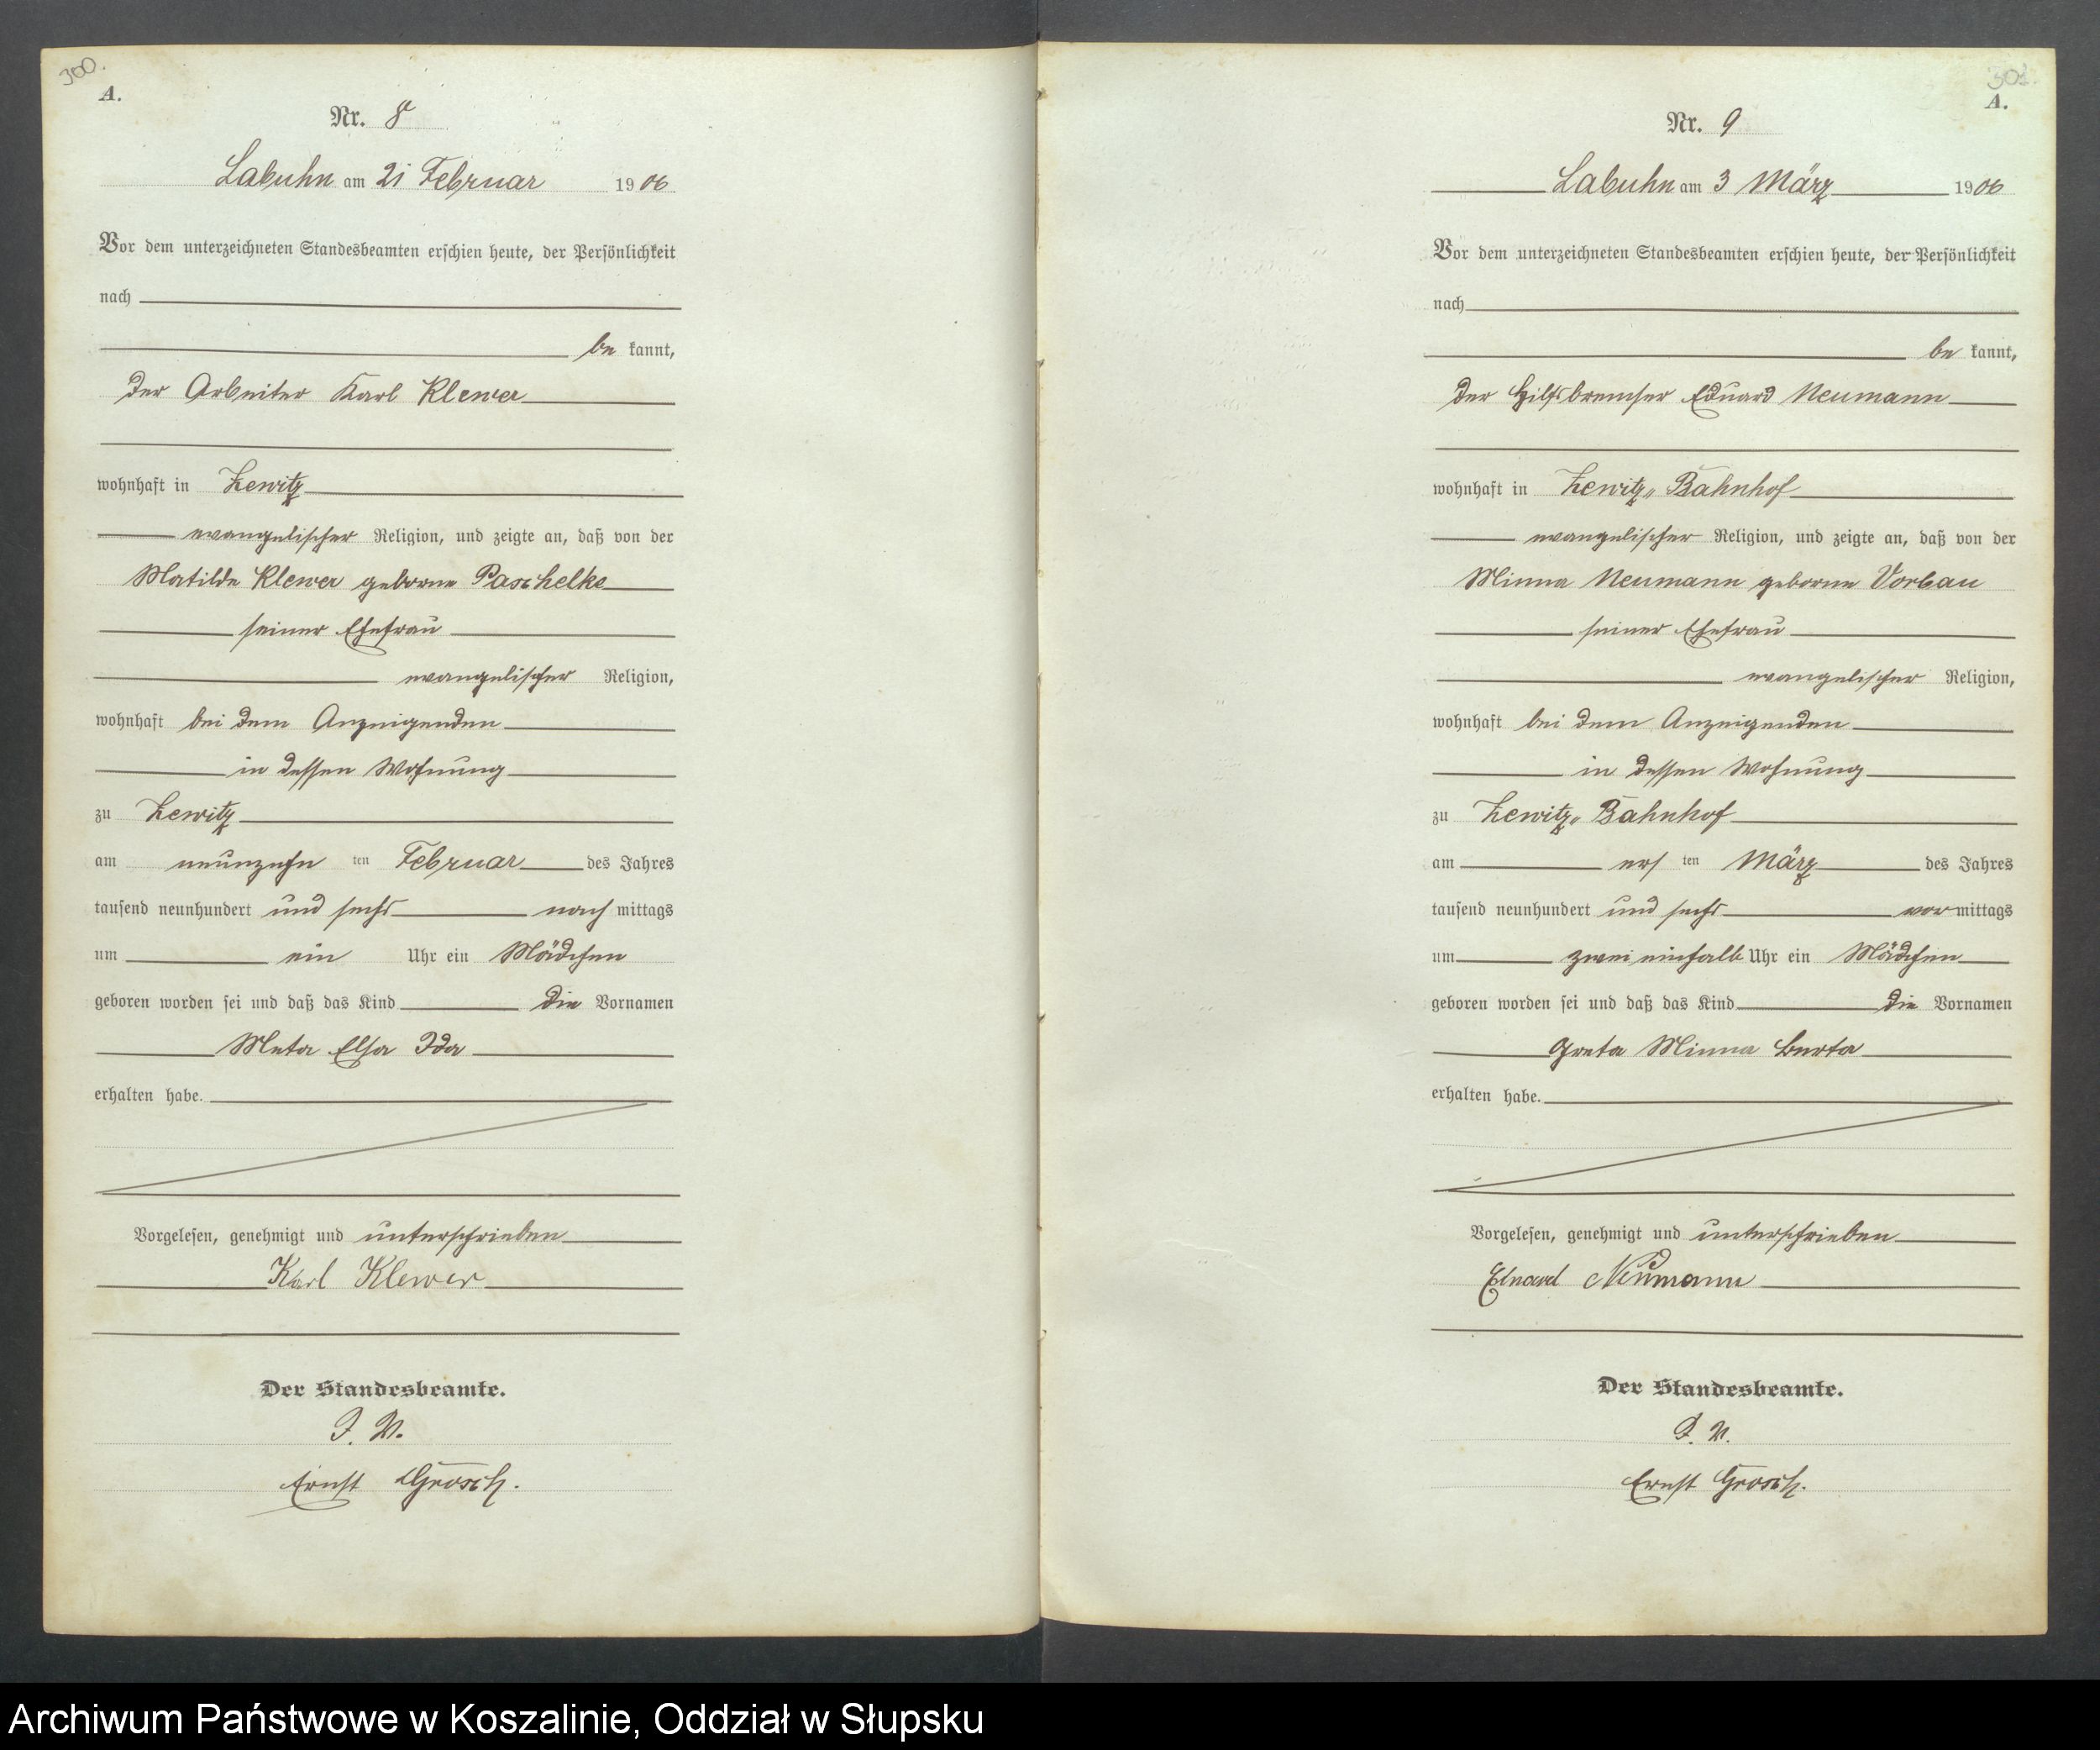 300.
A.
Nr. 8
Labuhn am 21 Februar 1906
Vor dem unterzeichneten Standesbeamten erschien heute, der Persönlichkeit
nach
be kannt,
der Arbeiter Karl Klewer
wohnhaft in Zewitz
evangelischer Religion, und zeigte an, daß von der
Matilde Klewer geborne Paschelke
seiner Ehefrau
evangelischer Religion,
wohnhaft bei dem Anzeigenden
in dessen Wohnung
zu Zewitz
am neunzehn ten Februar des Jahres
tausend neunhundert und sechs nach mittags
um ein Uhr ein Mädchen
geboren worden sei und daß das Kind die Vornamen
Meta Elsa Ida
erhalten habe.
Vorgelesen, genehmigt und unterschrieben
Karl Klewer
Der Standesbeamte.
I. V.
Ernst Grosch.
301.
A.
Nr. 9
Labuhn am 3 März 1906
Vor dem unterzeichneten Standesbeamten erschien heute, der Persönlichkeit
nach
be kannt,
der Hilfsbremser Eduard Neumann
wohnhaft in Zewitz„ Bahnhof
evangelischer Religion, und zeigte an, daß von der
Minna Neumann geborne Vorbau
seiner Ehefrau
evangelischer Religion,
wohnhaft bei dem Anzeigenden
in dessen Wohnung
zu Zewitz„ Bahnhof
am ers ten März des Jahres
tausend neunhundert und sechs vor mittags
um zwei einhalb Uhr ein Mädchen
geboren worden sei und daß das Kind die Vornamen
Greta Minna Berta
erhalten habe.
Vorgelesen, genehmigt und unterschrieben
Eduard Neumann
Der Standesbeamte.
I. V.
Ernst Grosch.
Archiwum Państwowe w Koszalinie, Oddział w Słupsku